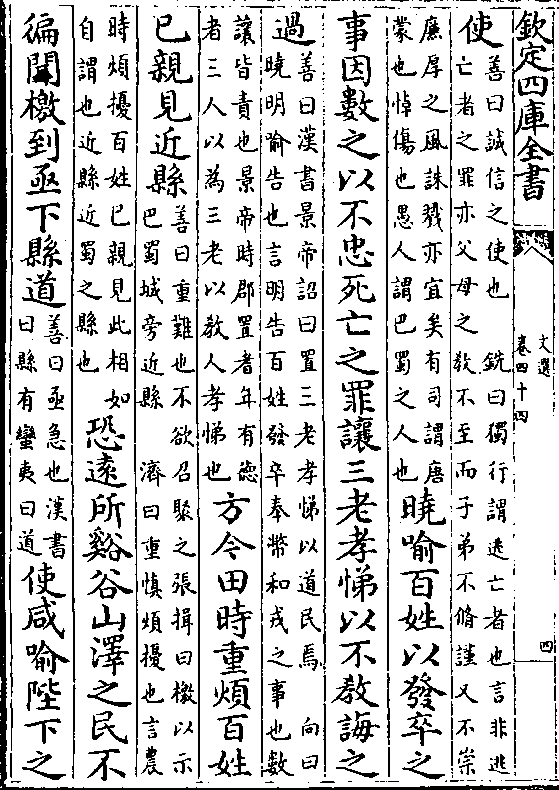 欽定四庫全書
文選
卷四十四
四
使
善曰誠信之使也 銑曰獨行謂逃亡者也言非逃
亡者之罪亦父母之教不至而子弟不脩謹又不崇
廉厚之風誅戮亦宜矣有司謂唐
蒙也悼傷也愚人謂巴蜀之人也
曉喻百姓以發卒之
事因數之以不忠死亡之罪讓三老孝悌以不教誨之
過
善曰漢書景帝詔曰置三老孝悌以道民焉 向曰
曉明喻告也言明告百姓發卒奉幣和戎之事也數
讓皆責也景帝時郡置者年有德
者三人以為三老以教人孝悌也
方今田時重煩百姓
已親見近縣
善曰重難也不欲召聚之張揖曰檄以示
巴蜀城旁近縣 濟曰重慎煩擾也言農
時煩擾百姓已親見此相如
自謂也近縣近蜀之縣也
恐遠所谿谷山澤之民不
徧聞檄到亟下縣道
善曰亟急也漢書
曰縣有蠻夷曰道
使咸喻陛下之